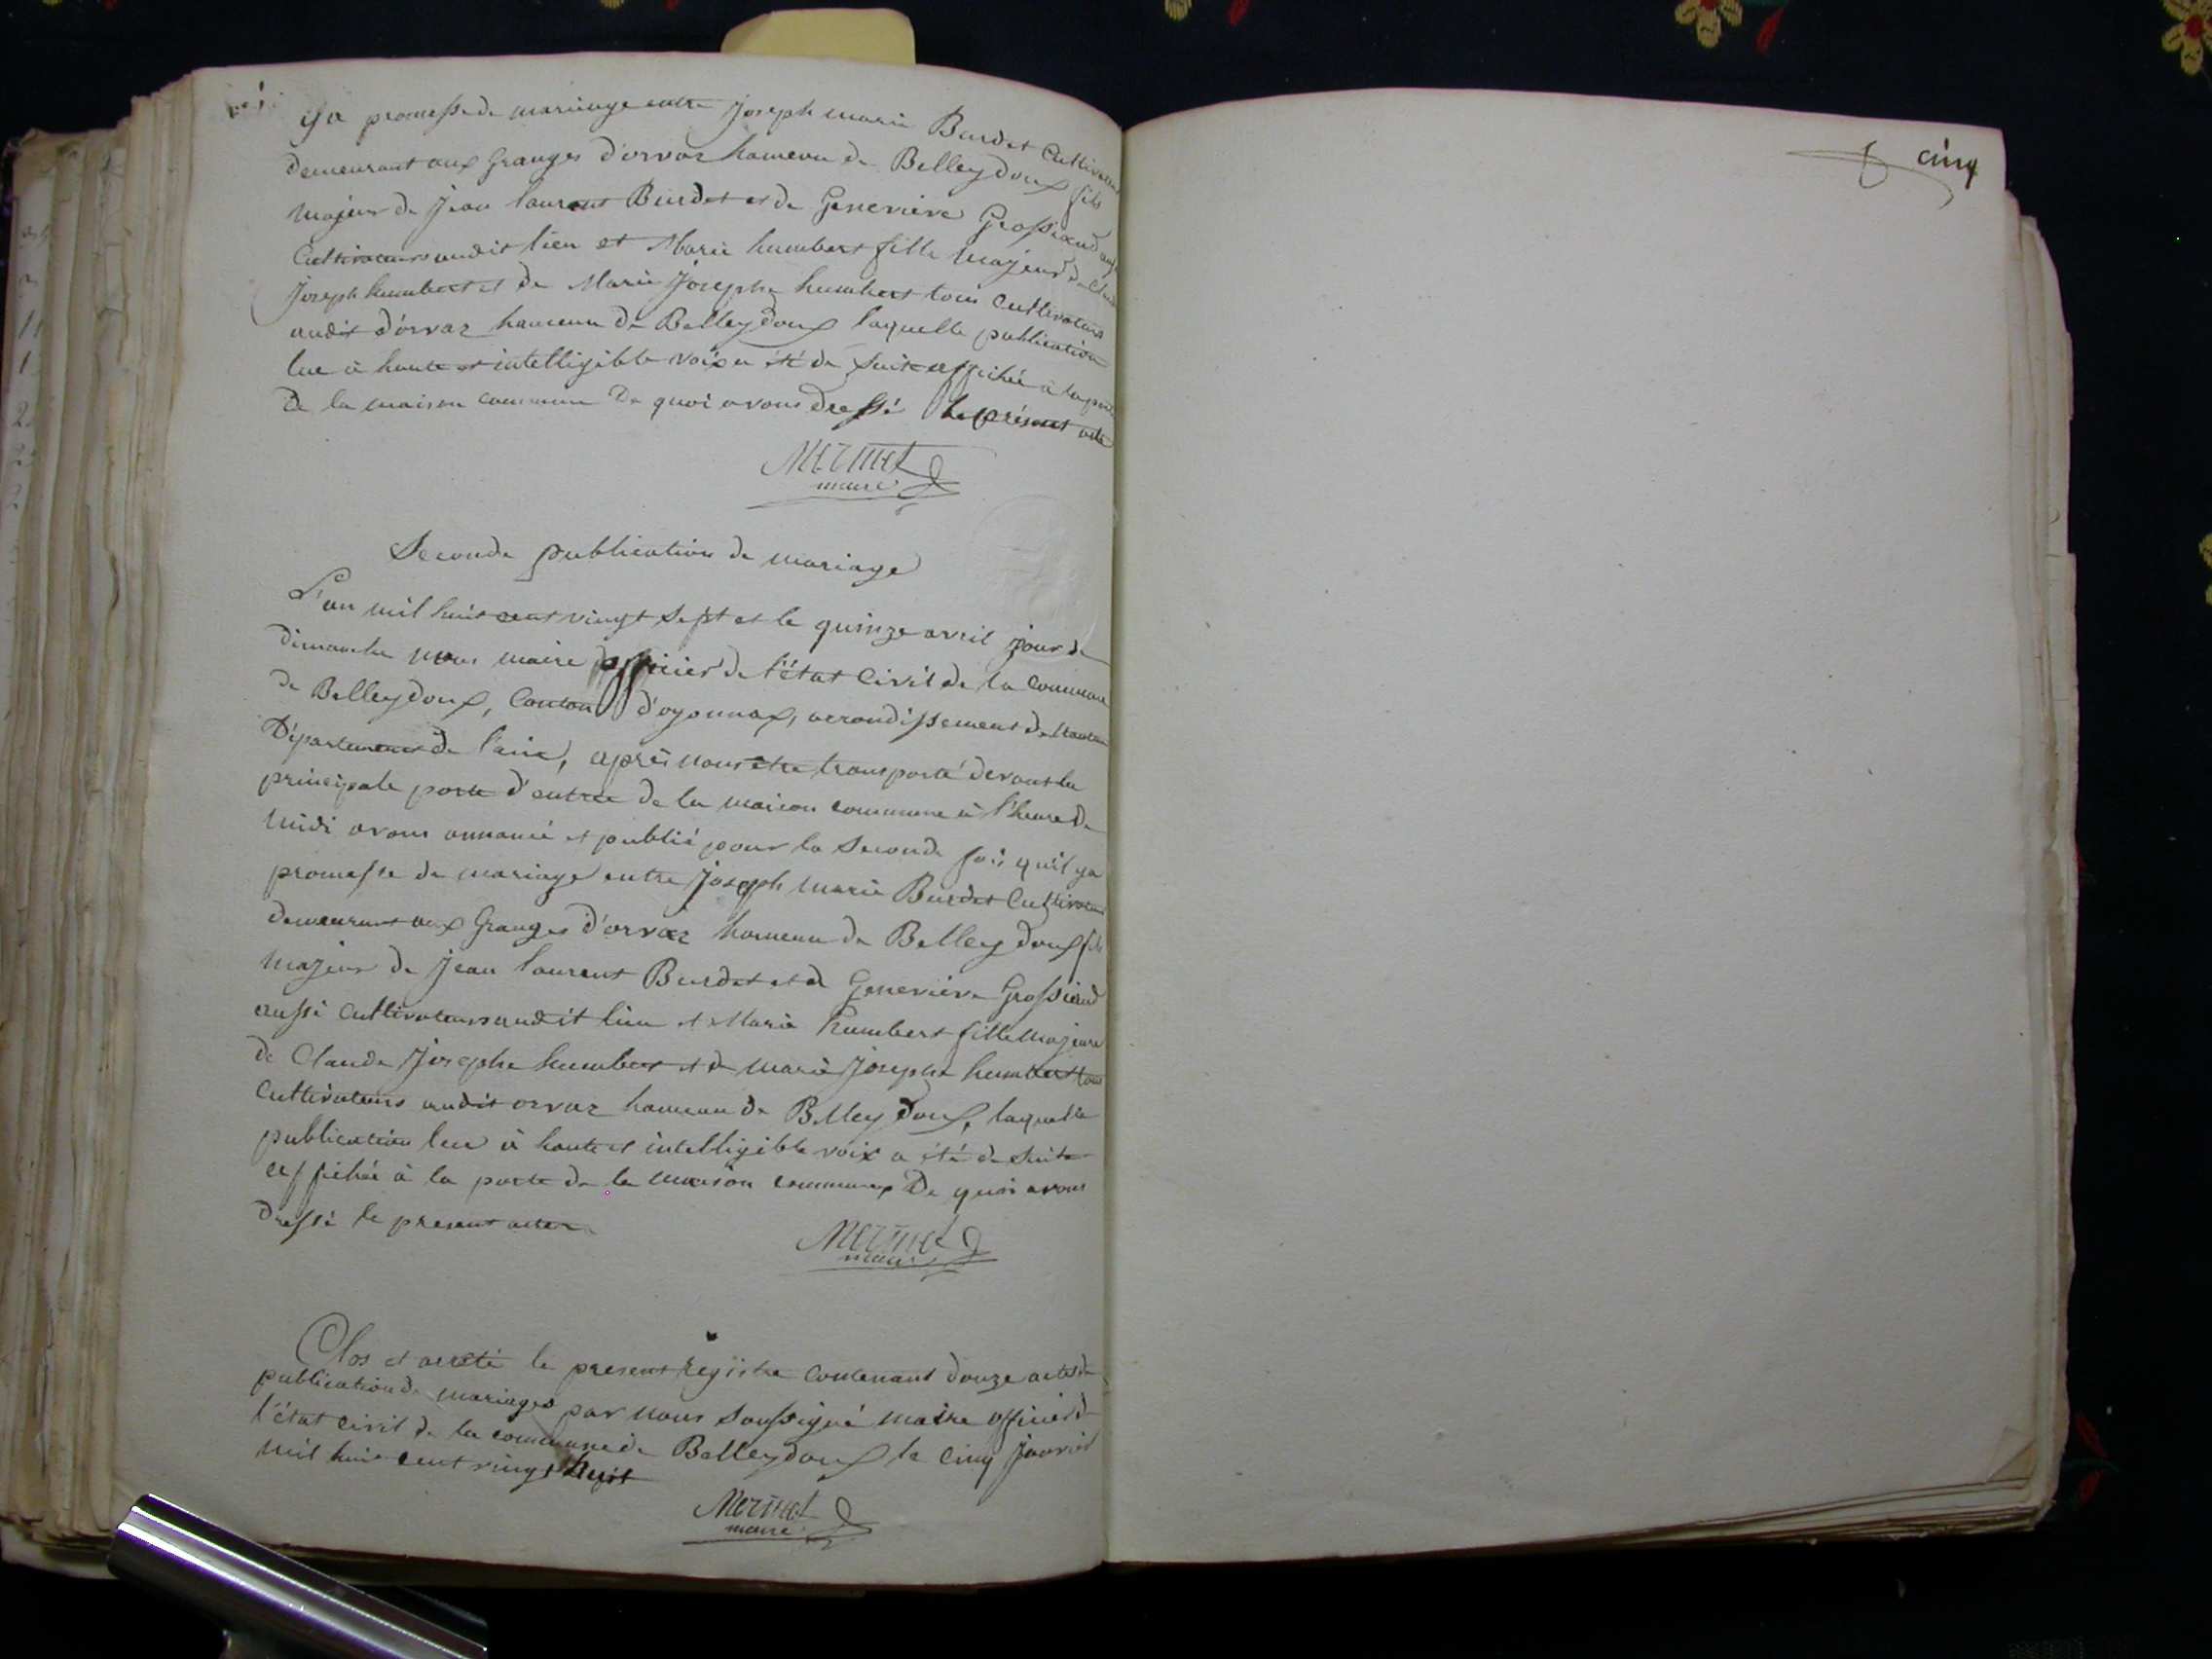 y a promesse de mariage entre Joseph marie Burdet Cultivateur
demeurant aux Granges d'orvaz hameau de Belleydoux fils
majeur de Jean laurent Burdet et de Genevieve Grossiord
Cultivateurs audit lieu et Marie humbert fille majeure de
Joseph humbert et de Marie Josephe humbert tous Cultivateurs
audit d'orvaz hameau de Belleydoux laquelle publication
lue à haute et intelligible voix a été de suite affichée à la porte
de la maison commune De quoi avons dressé le présent acte
Mermet
maire
Seconde publication de mariage
L'an mil huit cent vingt sept et le quinze avril jour de
dimanche nous maire officier de l'état Civil de la Commune
de Belleydoux, Canton d'oyonnax, arrondissement de Nantua
Département de l'ain, après nous être transporté devant la
principale porte d'entrée de la maison commune à l'heure de
midi avons annoncé et publié pour la seconde fois qu'il y a
promesse de mariage entre Joseph marie Burdet Cultivateur
demeurant aux Granges d'orvaz hameau de Belleydoux fils
majeur de Jean laurent Burdet et de Genevieve Grossiord
aussi Cultivateurs audit lieu et Marie humbert fille majeure
de Claude Josephe humbert et de marie Josephe humbert tous
Cultivateurs audit orvaz hameau de Belleydoux, laquelle
publication lue à haute et intelligible voix a été de suite
affichée à la porte de la maison commune De quoi avons
dressé le present acte
Mermet
maire
Clos et arrêté le present registre contenant douze actes de
publication de mariages par nous soussigné maire officier de
l'état civil de la commune de Belleydoux le cinq janvier
mil huit cent vingt huit
Mermet
maire
cinq